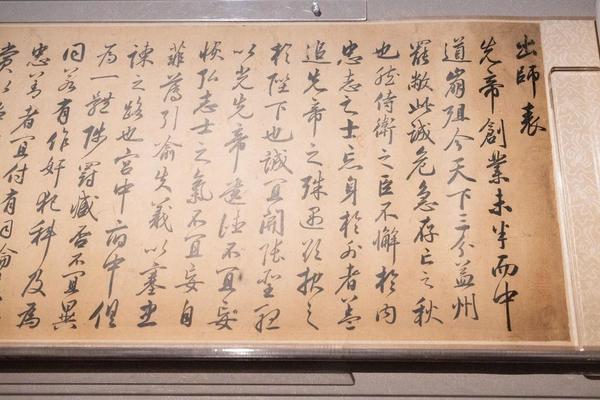 出師表
先帝創業未半而中
道崩殂今天下三分益州
罷敝此誠危急存亡之秋
也然侍衛之臣不懈於内
忠志之士忘身於外者蓋
追先帝之殊遇欲報之
於陛下也誠宜開張聖聽
以光先帝遺德不宜妄
恢弘志士之氣不宜妄自
菲薄引喻失義以塞忠
諫之路也宮中府中俱
為一體陟罰臧否不宜異
同若有作奸犯科及為
忠善者宜付有司論